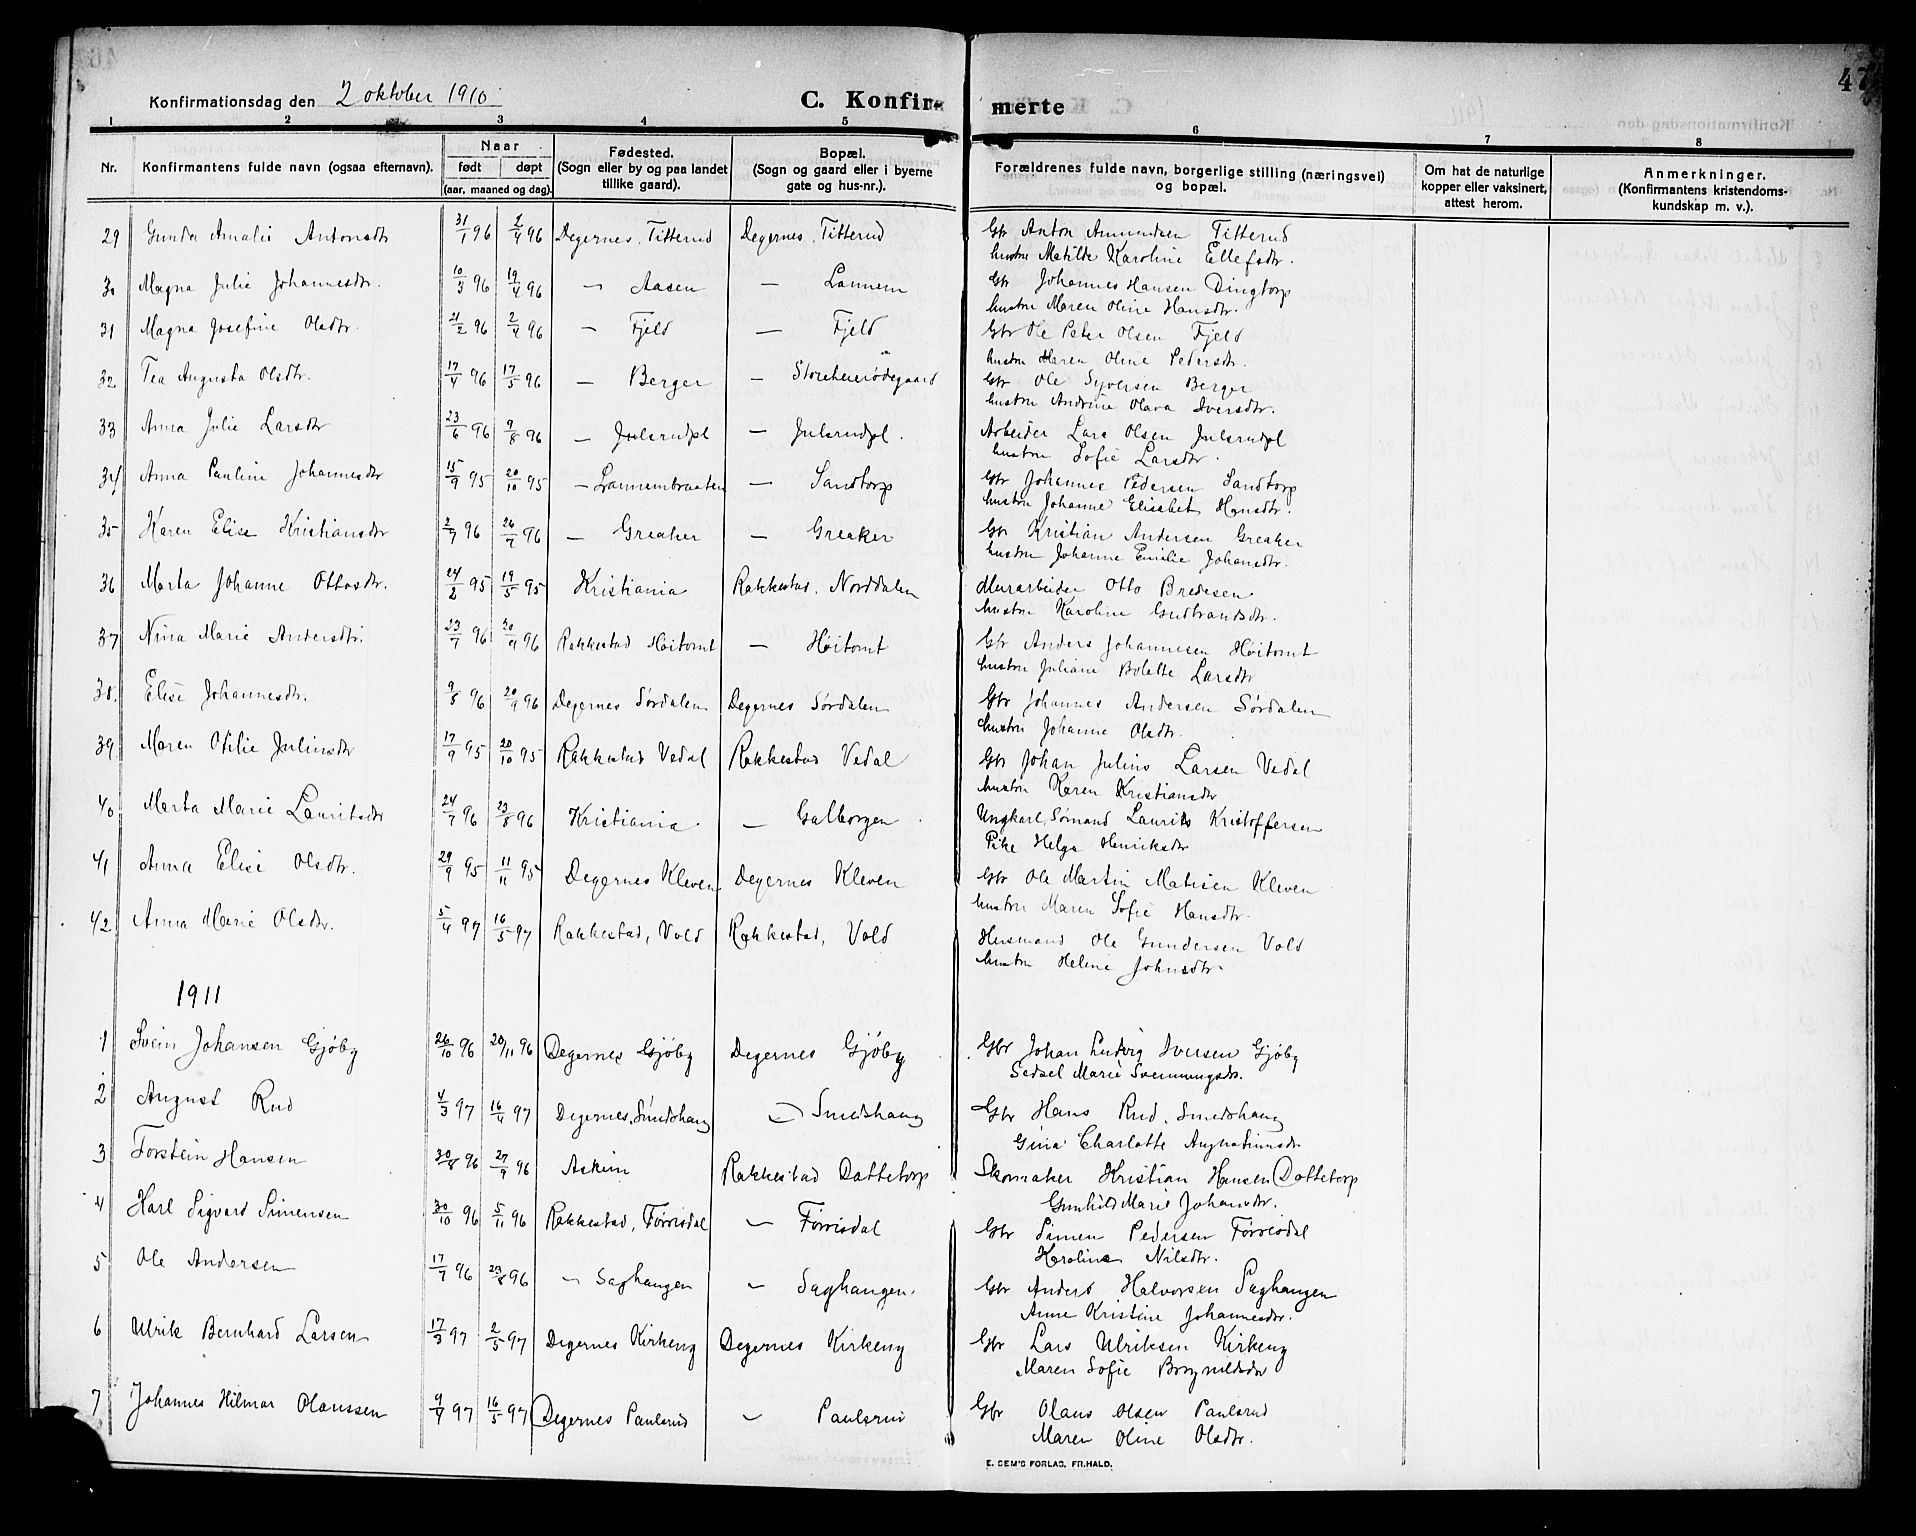 47
Konfirmationsdag den 2 oktober 1910
C. Konfirmerte
1 2 3 4 5 6 7 8
Nr. Konfirmantens fulde navn (ogsaa efternavn). Naar født døpt (aar, maaned og dag). Fødested. (Sogn eller by og paa landet tillike gaard). Bopæl. (Sogn og gaard eller i byerne gate og hus-nr.). Forældrenes fulde navn, borgerlige stilling (næringsvei) og bopæl. Om hat de naturlige kopper eller vaksinert, attest herom. Anmerkninger. (Konfirmantens kristendoms-kundskap m. v.).
29 Gunda Amalie Antonsdtr 31/1 96 2/4 96 Degernes, Titterud Degernes, Titterud Gbr Anton Amundsen Titterud
hustru Matilde Karoline Ellefsdtr.
30 Magna Julie Johannesdtr. 10/3 96 19/4 96 — Aasen — Lannem Gbr Johannes Hansen Dingtorp
hustru Maren Oline Hansdtr.
31 Magna Josefine Olsdtr. 21/2 96 2/4 96 — Fjeld — Fjeld Gbr Ole Peter Olsen Fjeld
hustru Maren Oline Pedersdtr.
32 Tea Augusta Olsdtr. 17/4 96 17/5 96 — Berger — Storeheierødegaard Gbr Ole Syversen Berger
hustru Andrine Olava Iversdtr.
33 Anna Julie Larsdtr 23/6 96 9/8 96 — Julsrudpl — Julsrudpl. Arbeider Lars Olsen Julsrudpl
hustru Sofie Larsdtr.
34 Anna Pauline Johannesdtr 15/9 95 20/10 95 — Lannembraaten — Sandtorp Gbr Johannes Pedersen Sandtorp
hustru Johanne Elisabet Hansdtr.
35 Karen Elise Kristiansdtr 2/7 96 26/7 96 — Greaker — Greaker Gbr Kristian Andersen Greaker
hustru Johanne Emilie Johansdtr.
36 Marta Johanne Ottosdtr. 24/2 95 19/5 95 Kristiania Rakkestad, Norddalen Murarbeider Otto Bredesen
hustru Karoline Gudbrandsdtr.
37 Nina Marie Andersdtr. 23/7 96 20/9 96 Rakkestad Høitomt — Høitomt Gbr Anders Johannesen Høitomt
hustru Juliane Bolette Larsdtr
38. Elise Johannesdtr. 9/8 96 20/9 96 Degernes Sørdalen Degernes Sørdalen Gbr Johannes Andersen Sørdalen
hustru Johanne Olsdtr.
39 Maren Otilie Juliusdtr 17/9 95 20/10 95 Rakkestad Vedal Rakkestad Vedal Gbr Johan Julius Larsen Vedal
hustru Karen Kristiansdtr
40 Marta Marie Lauritsdtr 24/7 96 23/8 96 Kristiania. — Galborgen Ungkarl, Sømand Laurits Kristoffersen
Pike Helga Henriksdtr
41 Anna Elise Olsdtr. 29/9 95 11/11 95 Degernes Kleven. Degernes Kleven Gbr Ole Martin Matisen Kleven
hustru Maren Sofie Hansdtr.
42 Anna Marie Olsdtr. 5/4 97 16/5 97 Rakkestad, Vold Rakkestad, Vold Husmand Ole Gundersen Vold
hustru Helene Johnsdtr.
1911
1 Svein Johansen Gjøby 26/10 96 20/11 96 Degernes Gjøby Degernes Gjøby Gbr Johan Ludvig Iversen Gjøby
Sedsel Marie Svenningsdtr.
2 August Rud 4/3 97 16/4 97 Degernes, Smedshaug — Smedshaug Gbr Hans Rud, Smedshaug
Gina Charlotte Augustinusdtr
3 Torstein Hansen 30/8 96 27/9 96 Askim Rakkestad Dattetorp Skomaker Kristian Hansen Dattetorp
Gunhild Marie Johansdtr.
4 Karl Sigvard Simensen 30/10 96 5/11 96 Rakkestad, Førrisdal — Førrisdal Gbr Simen Pedersen Førrisdal
Karoline Nilsdtr.
5 Ole Andersen 17/7 96 23/8 96 — Saghaugen — Saghaugen. Gbr Anders Halvorsen Saghaugen
Anne Kristine Johannesdtr.
6 Ulrik Bernhard Larsen 17/3 97 2/5 97 Degernes Kirkeng Degernes Kirkeng Gbr Lars Ulriksen Kirkeng
Maren Sofie
7 Johannes Hilmar Olaussen 9/4 97 16/5 97 Degernes Paulsrud — Paulsrud Gbr Olaus Olsen Paulsrud
Maren Oline Olsdtr.
E. SEM'S FORLAG, FR.HALD.